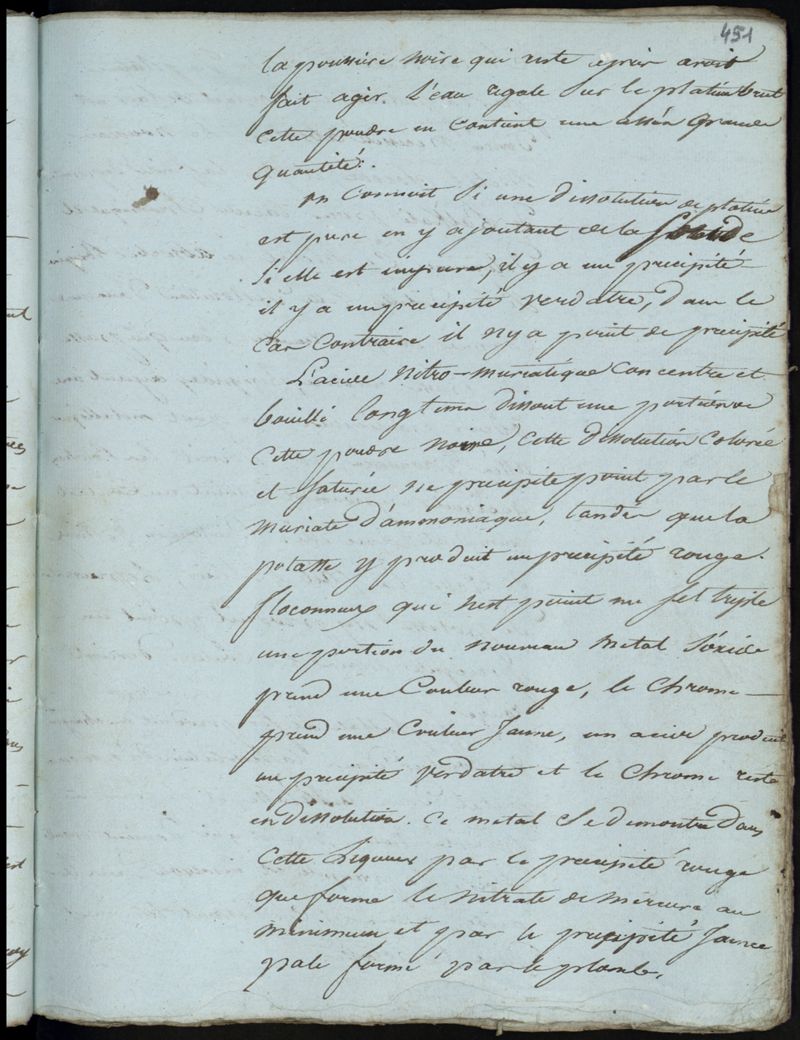 451
la poussiere noire qui reste après avoir
fait agir l'eau regale sur le platine brut
cette poudre en contient une assés grande
quantité.
on connoit si une dissolution de platine
est pure en y ajoutant de la soude
si elle est impure, il y a un precipité
il y a un precipité verdatre, dans le
cas contraire il ny a point de precipité
L'acide nitro-muriatique concentré et
bouilli longtems dissout une portion de
cette poudre noire, cette dissolution colorée
et saturée ne precipite point par le
muriate d'ammoniaque, tandis que la
potasse y produit un precipité rouge
floconneux qui nest point un sel triple
une portion du nouveau metal s'oxide
prend une couleur rouge, le chrome
prend une couleur jaune, un acide produit
un precipité verdatre et le chrome reste
en dissolution. ce metal se demontre dans
cette liqueur par le precipité rouge
que forme le nitrate de mercure au
minimum et par le precipité jaune
pale formé par le plomb.